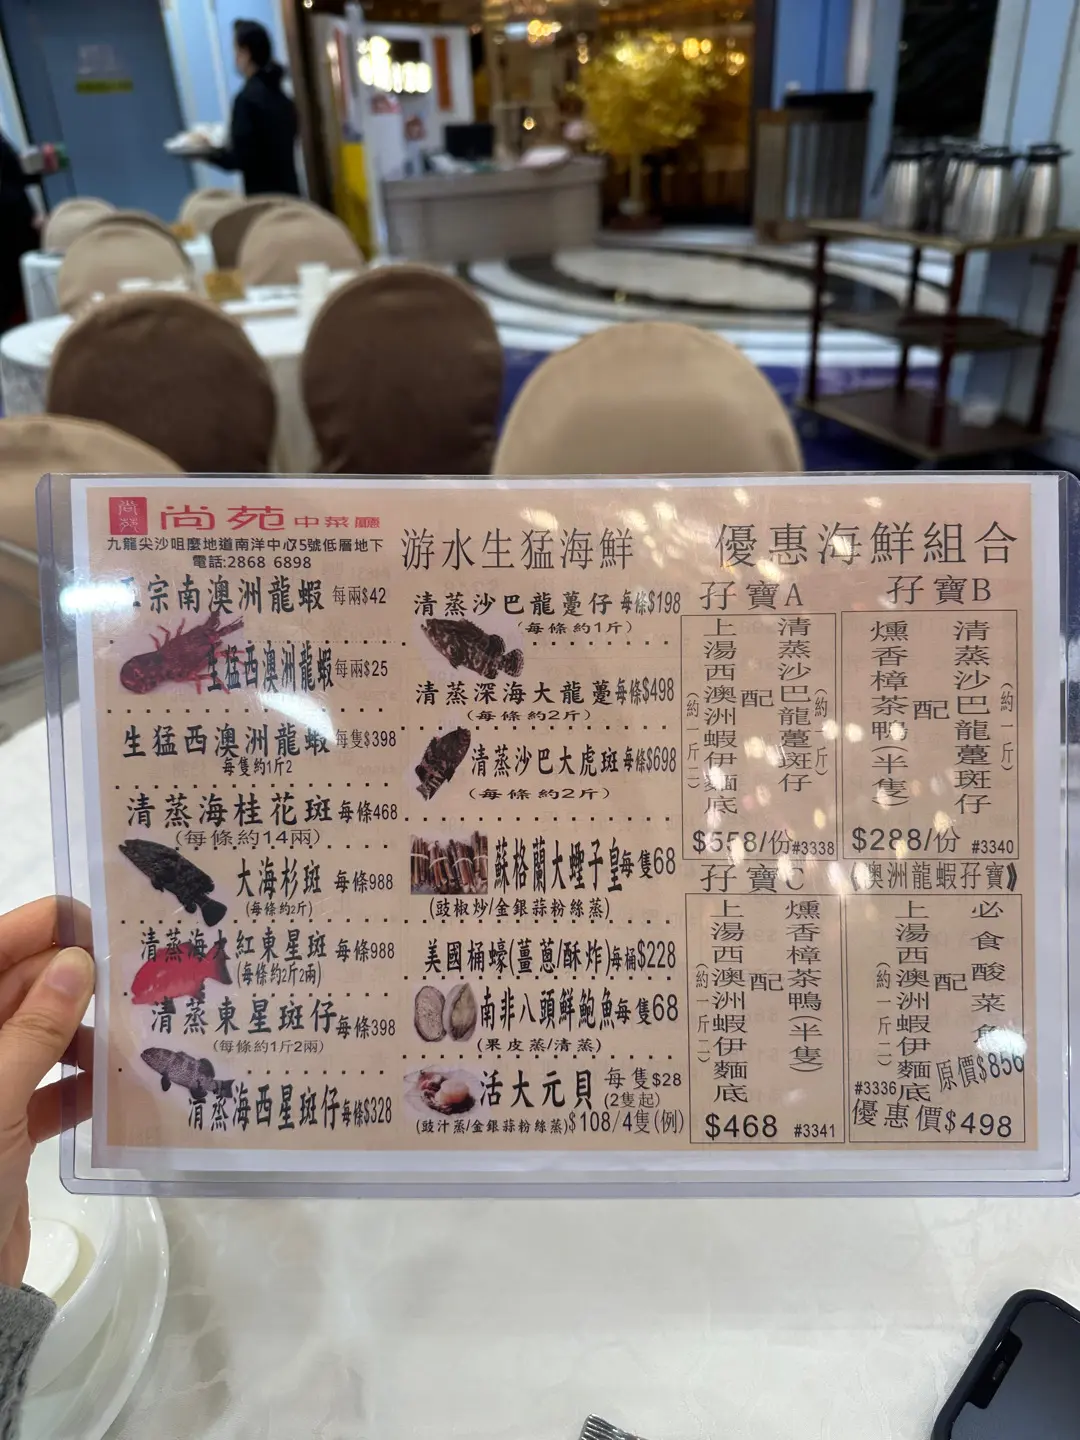 尚苑
尚苑 中菜廳
九龍尖沙咀麼地道南洋中心5號低層地下
電話:2868 6898
游水生猛海鮮
優惠海鮮組合
正宗南澳洲龍蝦 每兩$42
生猛西澳洲龍蝦 每兩$25
生猛西澳洲龍蝦 每隻$398
每隻約1斤2
清蒸海桂花斑 每條468
(每條約14兩)
大海杉斑 每條988
(每條約2斤)
清蒸海大紅東星斑 每條988
(每條約2斤2兩)
清蒸東星斑仔 每條398
(每條約1斤2兩)
清蒸海西星斑仔 每條$328
清蒸沙巴龍躉仔 每條$198
(每條約1斤)
清蒸深海大龍躉 每條$498
(每條約2斤)
清蒸沙巴大虎斑 每條$698
(每條約2斤)
蘇格蘭大蟶子皇 每隻68
(豉椒炒/金銀蒜粉絲蒸)
美國桶蠔(薑蔥/酥炸) 每桶$228
南非八頭鮮鮑魚 每隻68
(果皮蒸/清蒸)
活大元貝 每隻$28
(2隻起)
(豉汁蒸/金銀蒜粉絲蒸)$108/4隻(例)
孖寶A
清蒸沙巴龍躉斑仔
(約一斤)
配
上湯西澳洲蝦伊麵底
(約一斤二)
$558/份 #3338
孖寶B
清蒸沙巴龍躉斑仔
(約一斤)
配
燻香樟茶鴨(半隻)
$288/份 #3340
孖寶C
燻香樟茶鴨(半隻)
配
上湯西澳洲蝦伊麵底
(約一斤二)
$468 #3341
《澳洲龍蝦孖寶》
必食酸菜魚
配
上湯西澳洲蝦伊麵底
(約一斤二)
#3336
原價$856
優惠價$498